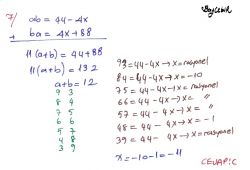 7/ ab = 44-4x
+ ba = 4x+88
11(a+b) = 44+88
11(a+b) = 132
a+b = 12
9 3
8 4
7 5
6 6
5 7
4 8
3 9
93 = 44-4x → x = rasyonel
84 = 44-4x → x = -10
75 = 44-4x → x = rasyonel
66 = 44-4x → x = "
57 = 44-4x → x = "
48 = 44-4x → x = -1
39 = 44-4x → x = rasyonel
x = -10-1 = -11
CEVAP: C